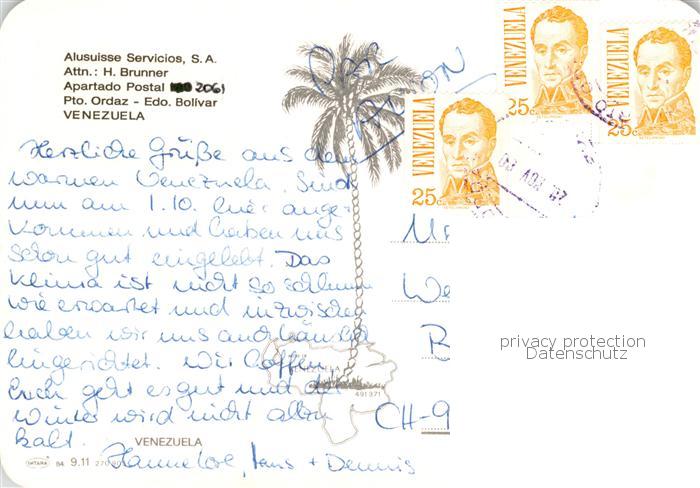 Alusuisse Servicios, S.A.
Attn.: H. Brunner
Apartado Postal 2061
Pto. Ordaz - Edo. Bolívar
VENEZUELA
Par Avion
VENEZUELA
25c
VENEZUELA
25c
VENEZUELA
25c
Herzliche Grüße aus dem
warmen Venezuela. Sind
nun am 1.10. hier ange-
kommen und haben uns
schon gut eingelebt. Das
Klima ist nicht so schlimm
wie erwartet und inzwischen
haben wir uns auch häuslich
eingerichtet. Wir hoffen
Euch geht es gut und der
Winter wird nicht allzu
kalt.
Hannelore, Hans + Dennis
We
B
CH-9
privacy protection
Datenschutz
VENEZUELA
491371
VENEZUELA
84 9.11